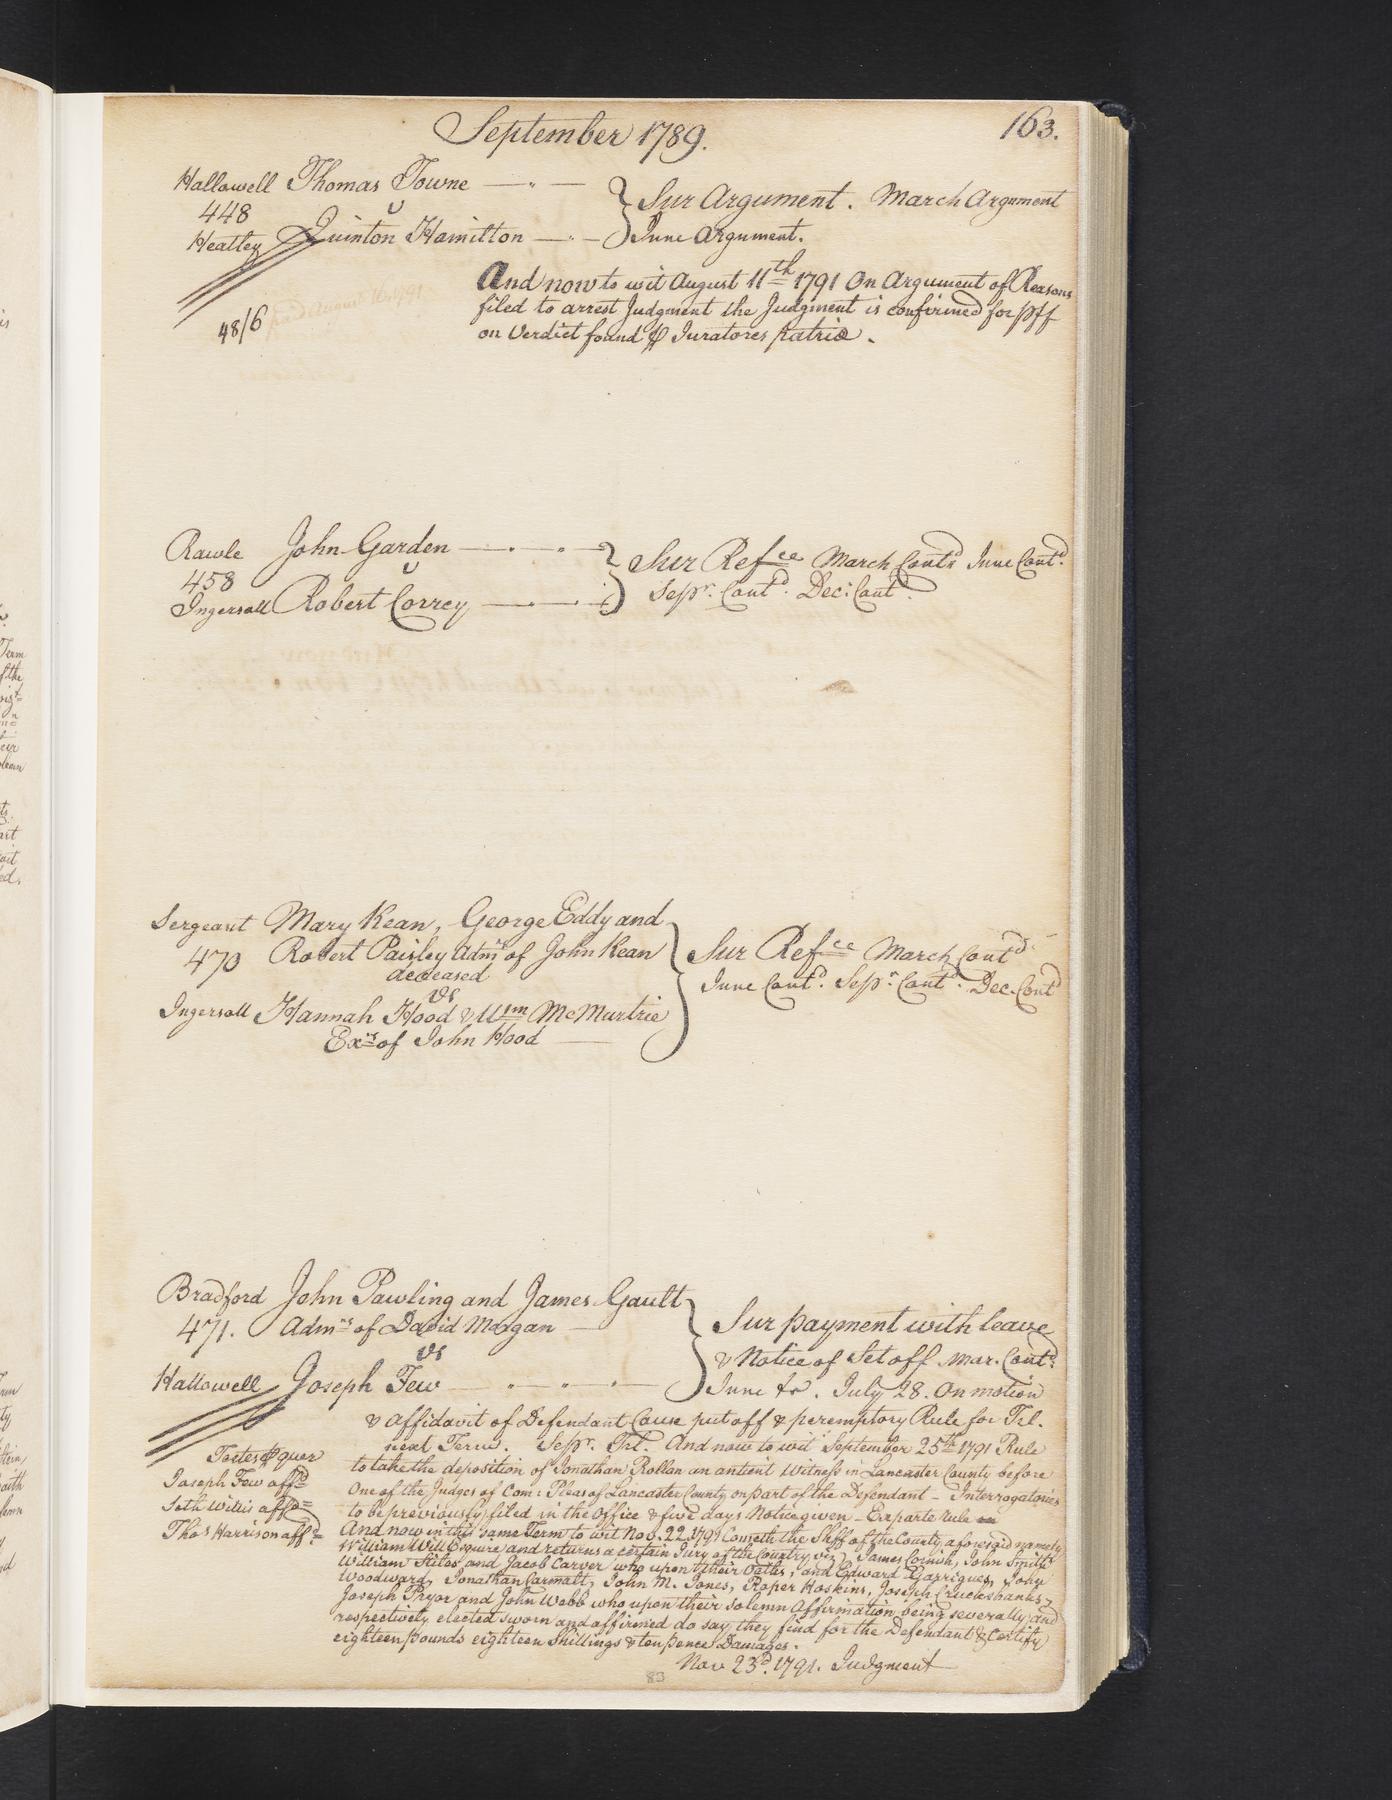 September 1789.
163.
Hallowell Thomas Towne
448 v
Heatley Quinton Hamilton
Sur Argument. March Argument
June Argument.
And now to wit August 11th 1791 On Argument of Reasons
filed to arrest Judgment the Judgment is confirmed for pff
on Verdict found P Juratores patria.
48/6
Rawle John Garden
458 v
Ingersoll Robert Correy
Sur Refce March Contd June Contd.
Sepr. Contd. Dec: Contd.
Sergeant Mary Kean, George Eddy and
470 Robert Paisley Admrs of John Kean
deceased
vs
Ingersoll Hannah Hood & Wm McMurtrie
Exrs of John Hood
Sur Refce March Contd.
June Contd. Sepr. Contd. Dec. Contd
Bradford John Pawling and James Gault
471. Admrs of David Morgan
vs
Hallowell Joseph Few
Sur payment with leave
& Notice of Set off Mar. Contd.
June Tr. July 28. On motion
& Affidavit of Defendant Cause put off & peremptory Rule for Trl.
next Term. Sepr. Trl. And now to wit September 25th 1791 Rule
to take the deposition of Jonathan Rollan an antient Witness in Lancaster County before
One of the Judges of Com: Pleas of Lancaster County on part of the Defendant - Interrogatories
to be previously filed in the Office & five days Notice given - Exparte Rule
Testes P quer
Joseph Few affd
Seth Willis affd
Thos Harrison affd
And now in this same Term to wit Nov. 22. 1791 Cometh the Shff of the County aforesaid namely
William Will Esquire and returns a certain Jury of the Country viz James Cornish, John Smith
William Stiles and Jacob Carver who upon their Oaths, and Edward Garrigues, John
Woodward, Jonathan Carmalt, John M. Jones, Raper Hoskins, Joseph Cruckshanks,
Joseph Pryor and John Webb who upon their solemn Affirmation being severally and
respectively elected sworn and affirmed do say they find for the Defendant & Certify
eighteen pounds eighteen Shillings & ten pence Damages.
Nov 23d. 1791. Judgment
83